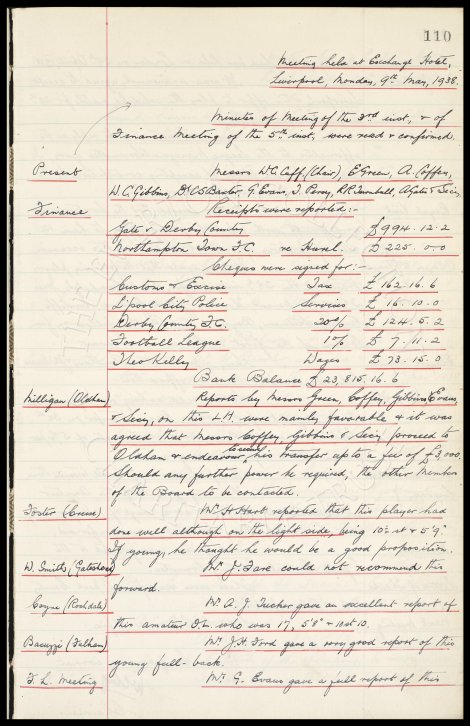 110
Meeting held at Exchange Hotel,
Liverpool, Monday, 9th May, 1938.
Minutes of Meeting of the 3rd inst, & of
Finance Meeting of the 5th inst, were read & confirmed.
Present Messrs W.C. Cuff, (Chair), E. Green, A. Coffey,
W.C. Gibbins, Dr C.S. Baxter, G. Evans, T. Percy, R.R. Turnbull, A. Gates & Secy,
Finance Receipts were reported:-
Gate v Derby County £994.12.2
Northampton Town F.C. re Hurel. £225.0.0
Cheques were signed for:-
Customs & Excise Tax £162.16.6
L'pool City Police Services £16.10.0
Derby County F.C. 20% £124.5.2
Football League 1% £7.11.2
Theo Kelly Wages £73.15.0
Bank Balance £23,815.16.6
Milligan (Oldham) Reports by Messrs Green, Coffey, Gibbins, Evans,
& Secy, on this L.H. were mainly favorable & it was
agreed that Messrs Coffey, Gibbins & Secy proceed to
Oldham & endeavour to secure his transfer up to a fee of £3,000.
Should any further power be required, the other members
of the Board to be contacted.
Foster (Crewe) Mr H. Hart reported that this player had
done well although on the light side, being 10st & 5'9"
If young, he thought he would be a good proposition.
W. Smith (Gateshead) Mr J. Fare could not recommend this
forward.
Coyne (Rochdale) Mr A.J. Tucker gave an excellent report of
this amateur I.L. who was 17, 5'8" & 11st 10.
Bacuzzi (Fulham) Mr J.H. Ford gave a very good report of this
young full-back.
F.L. Meeting Mr G. Evans gave a full report of this